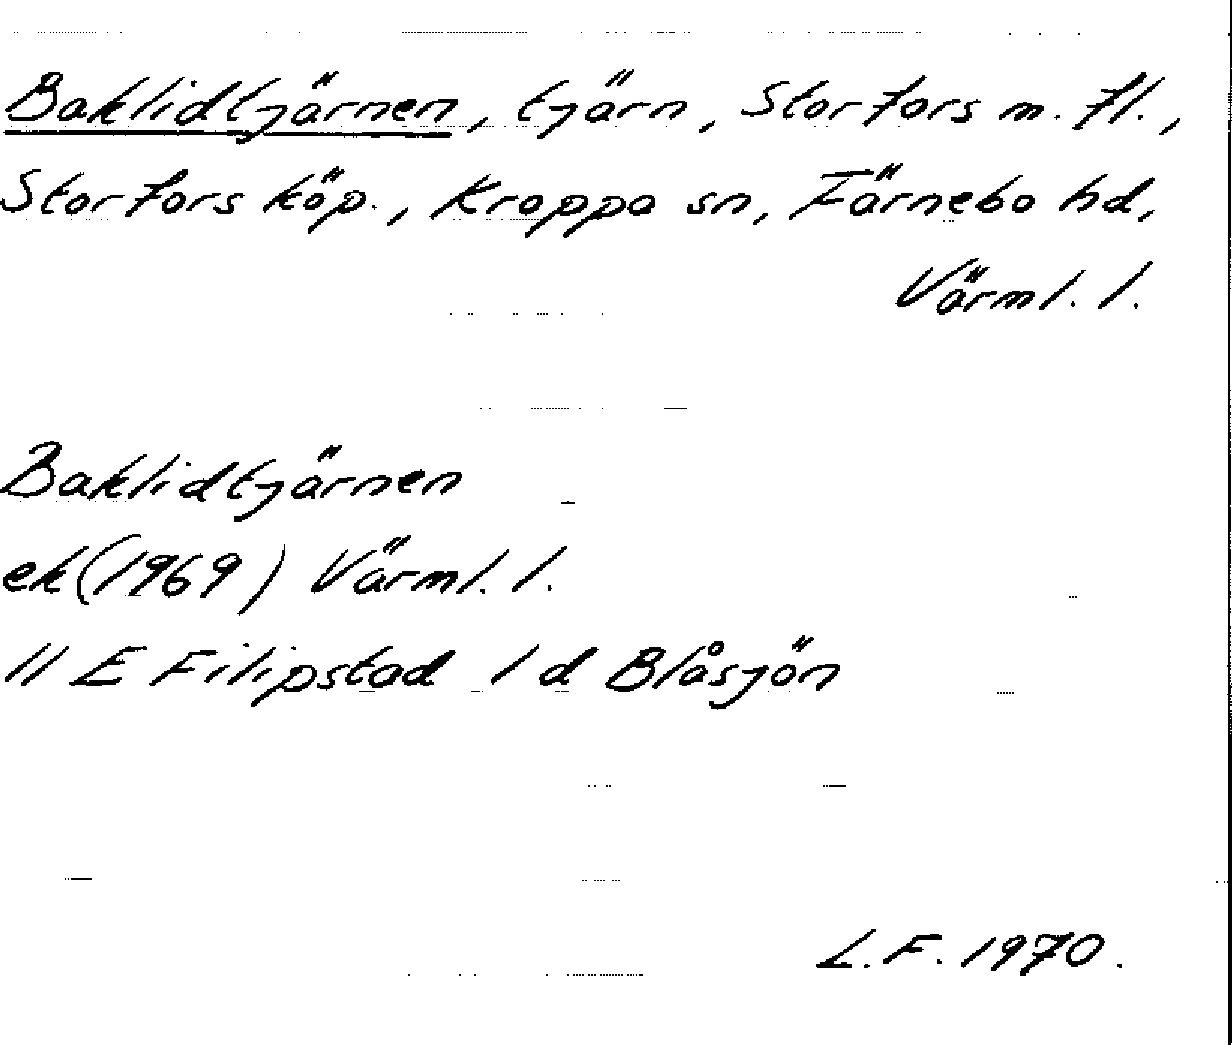 Baklidtjärnen, tjärn, Storfors m. fl.,
Storfors köp., Kroppa sn, Färnebo hd,
Värml. l.
Baklidtjärnen
ek (1969) Värml. l.
11 E Filipstad 1 d Blåsjön
L.F. 1970.